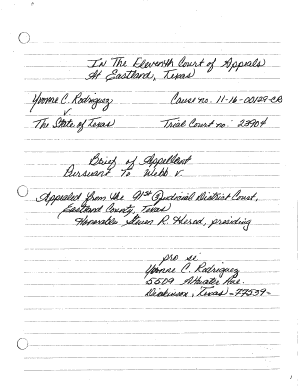 In The Eleventh Court of Appeals
At Eastland, Texas
Yvonne C. Rodriguez Cause no. 11-16-00129-CR
v
The State of Texas Trial Court no: 23904
Brief of Appellant
Pursuant To Webb v.
Appealed from the 91st Judicial District Court,
Eastland County, Texas
Honorable Steven R. Herod, presiding
pro se
Yvonne C. Rodriguez
5509 Ave.
Dickinson, Texas -77539-